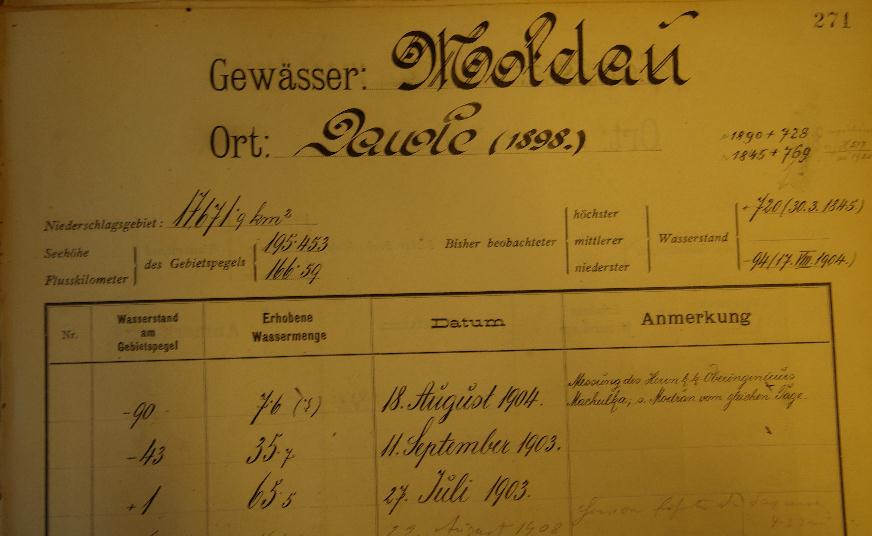 271
Gewässer: Moldau
Ort: Dawle (1898.)
1890 + 728
1845 + 769
Niederschlagsgebiet: 17.671·9 km²
Seehöhe
Flusskilometer
des Gebietspegels
195·453
166·59
Bisher beobachteter
höchster
mittlerer
niederster
Wasserstand
+720 (30.3.1845)
-94 (17. VIII 1904.)
Nr. Wasserstand am Gebietspegel Erhobene Wassermenge Datum Anmerkung
-90 7·6 (?) 18. August 1904. Messung des Herrn k. k. Oberingenieurs
Machulka, s. Modran vom gleichen Tage.
-43 35·7 11. September 1903.
+1 65·5 27. Juli 1903.
August 1908